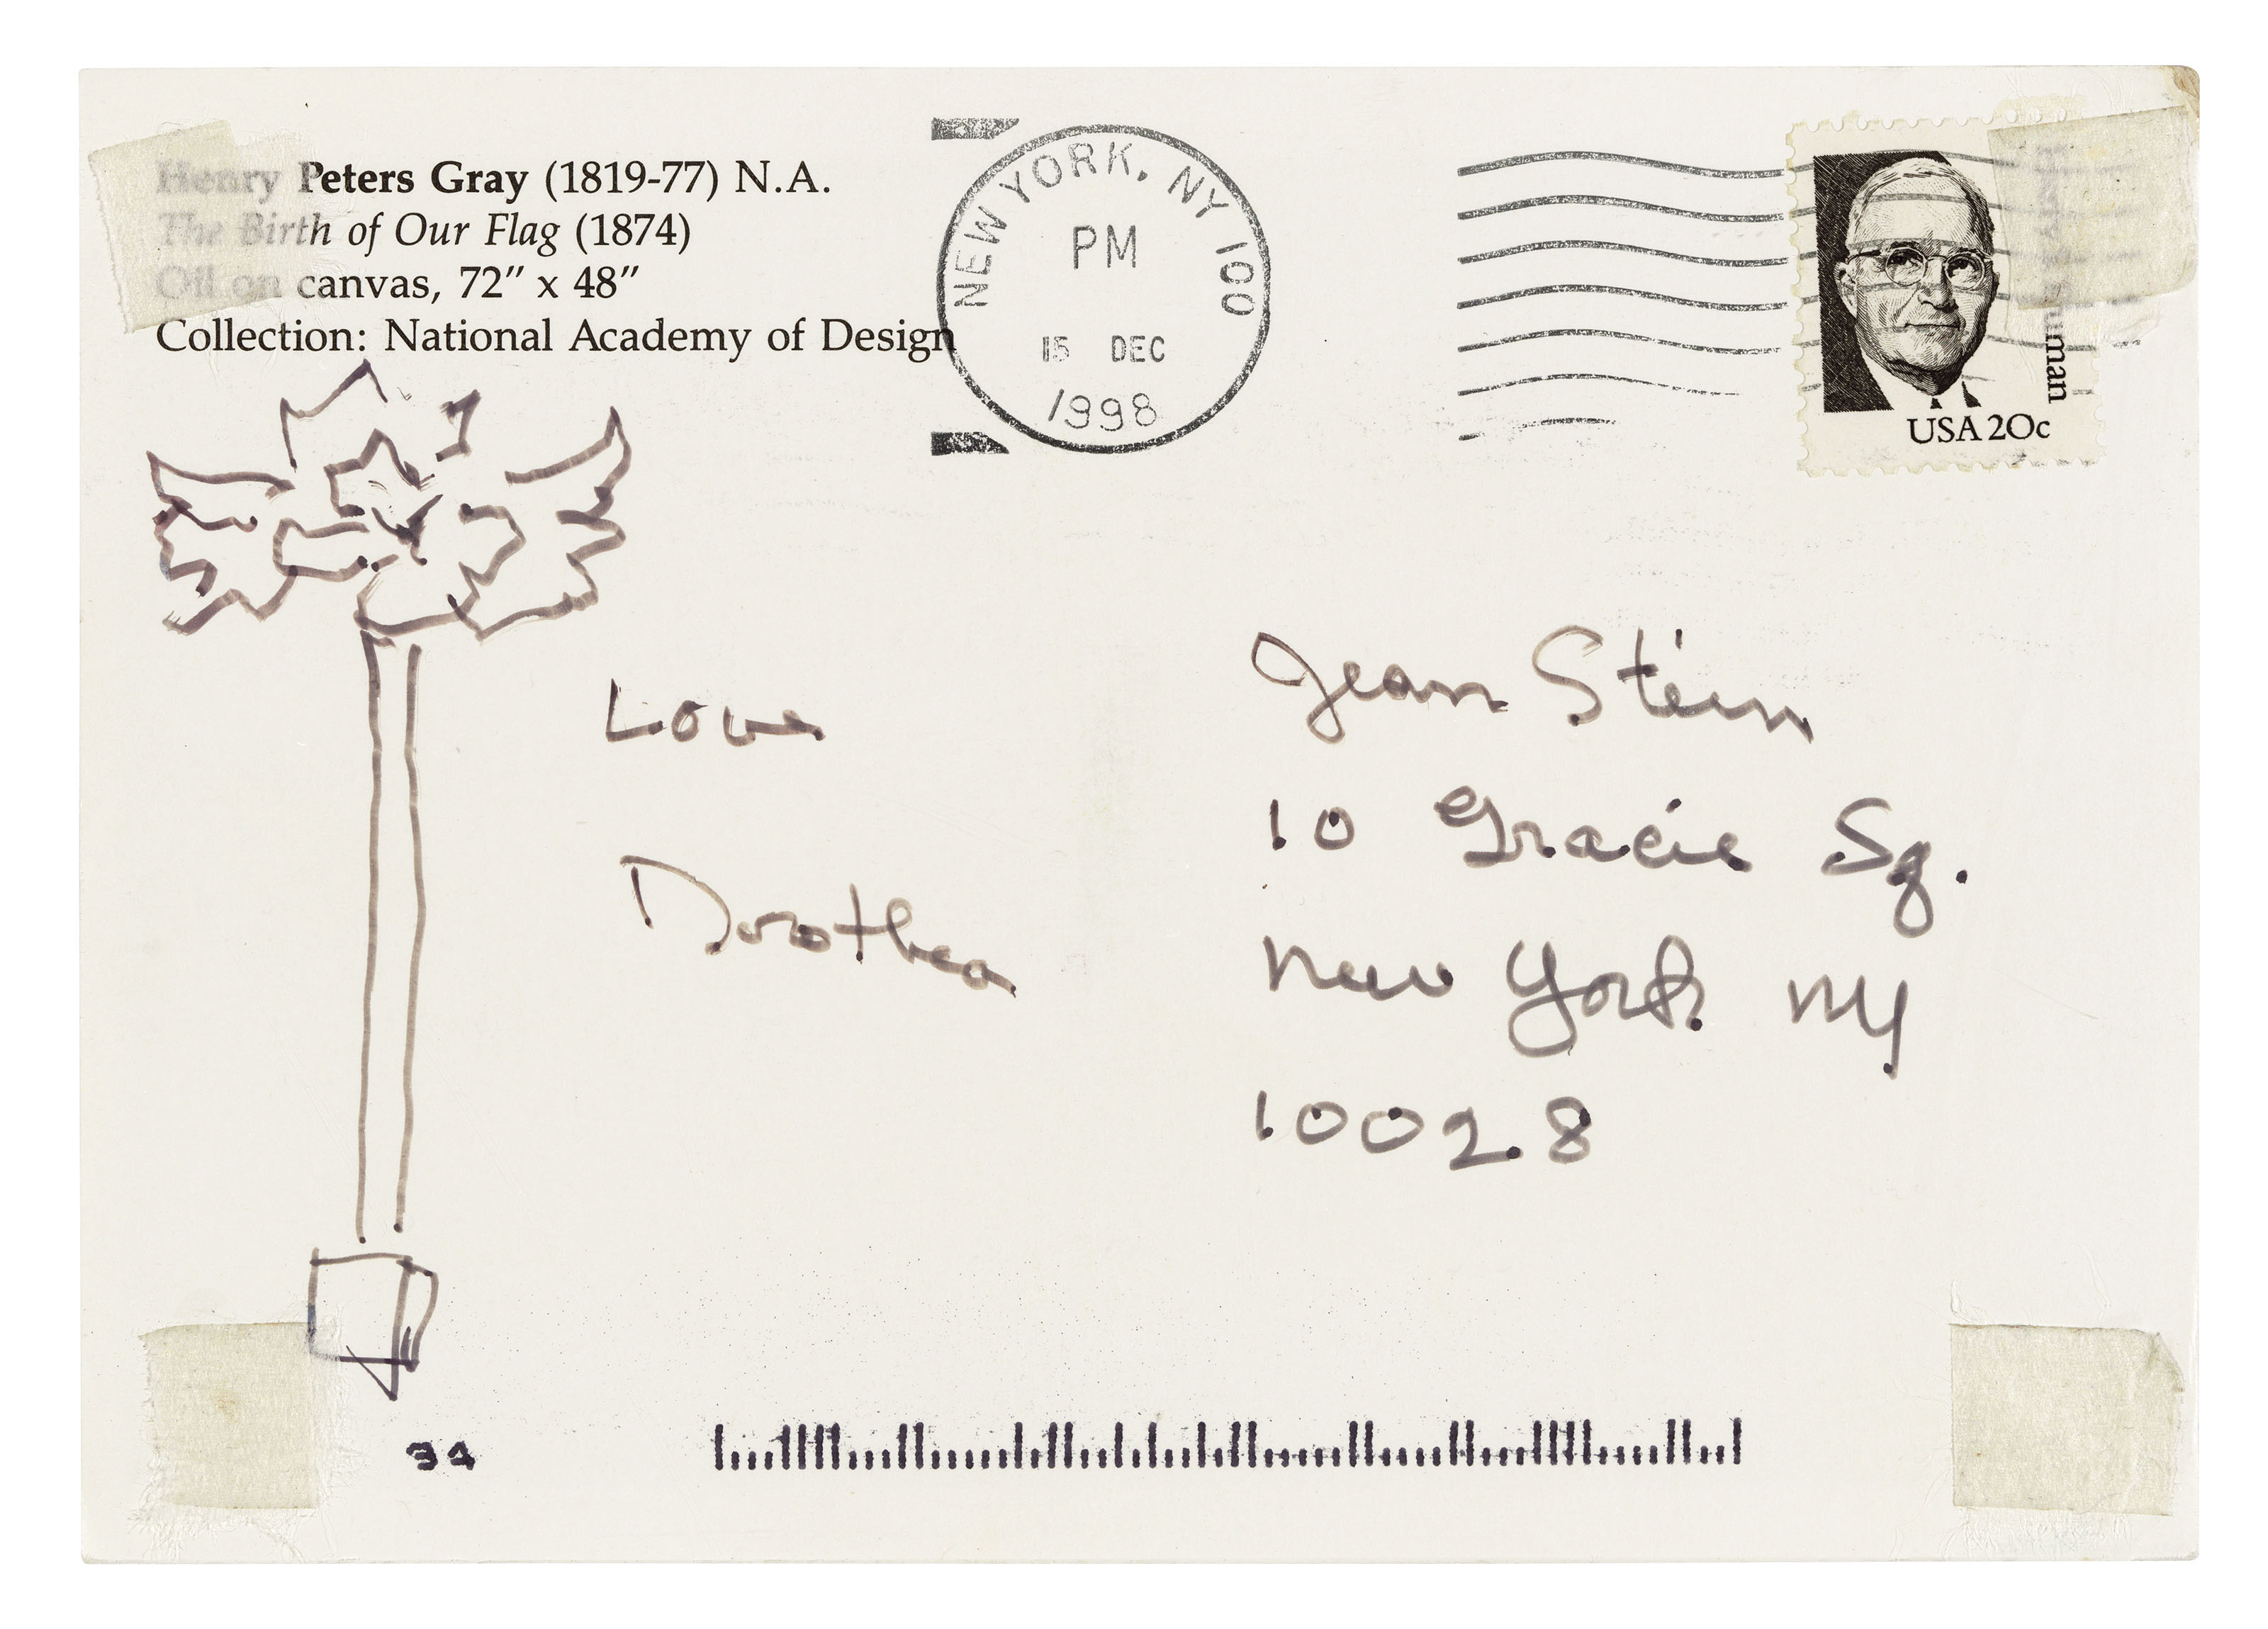 Henry Peters Gray (1819-77) N.A.
The Birth of Our Flag (1874)
Oil on canvas, 72" x 48"
Collection: National Academy of Design
NEW YORK, NY 100
PM
15 DEC
1998
Truman
USA 20c
Love
Dorothea
Jean Stein
10 Gracie Sq.
New York NY
10028